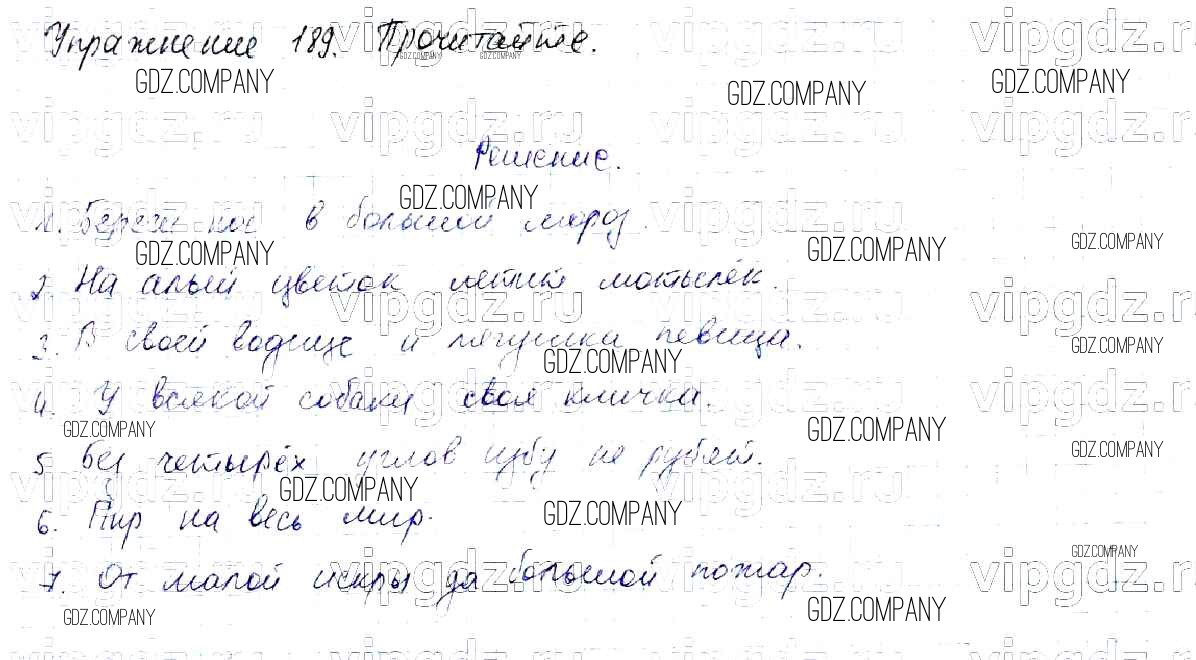 Упражнение 189. Прочитайте.
Решение.
1. Береги нос в большой мороз.
2. На алый цветок летит мотылёк.
3. В своей водице и лягушка певица.
4. У всякой собаки своя кличка.
5. Без четырёх углов избу не рубят.
6. Пир на весь мир.
7. От малой искры да большой пожар.
GDZ.COMPANY
vipgdz.ru